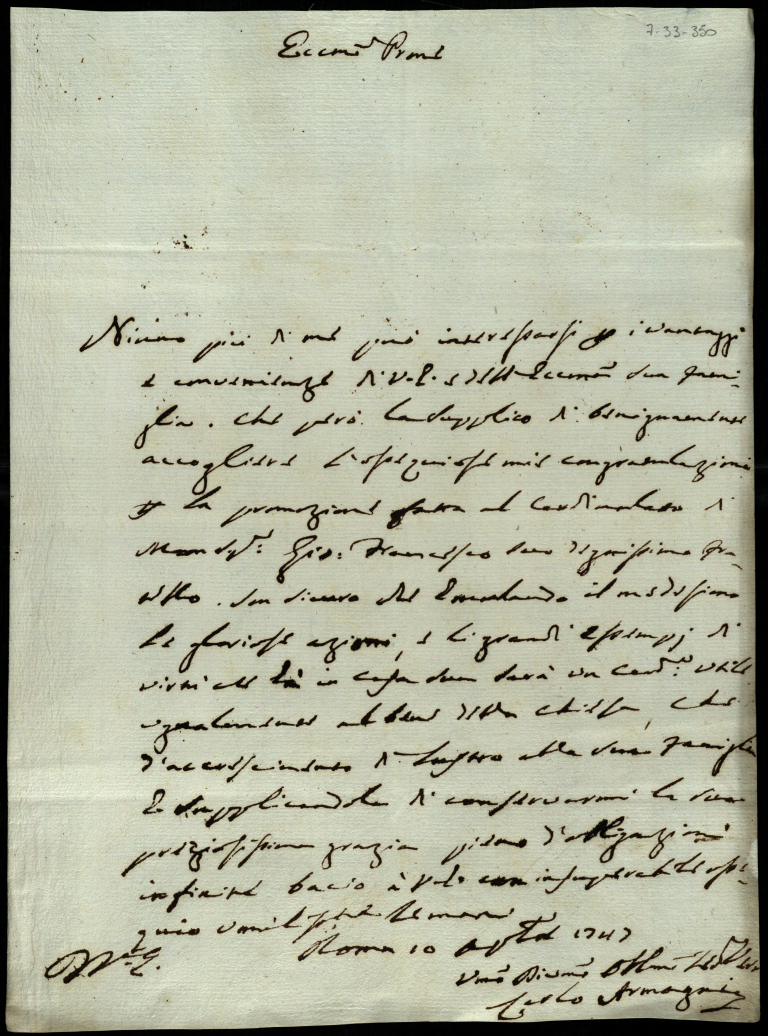 7-33-350
Eccmo Prone
Niuno più di me può interessarsi p i vantaggi
e convenienze di V. E. e della Eccma sua fami-
glia. Che però la supplico di benignamente
accogliere l'ossequiose mie congratulazioni
p la promozione fatta al Cardinalato di
Monsigr: Gio: Francesco suo degnissimo fra-
tello. Son sicuro che emulando il medesimo
le gloriose azioni, e li grandi esempj di
virtù che in casa sua sarà un Cardle utile
ugualmente al bene della Chiesa, che
d'accrescimento di lustro alla sua Famiglia
E supplicandola di conservarmi la sua
preziosissima grazia pieno d'obligazioni
infinite bacio à V. E. con insuperabile osse-
quio umilmte le mani
Roma 10 1747
Carlo Armagni